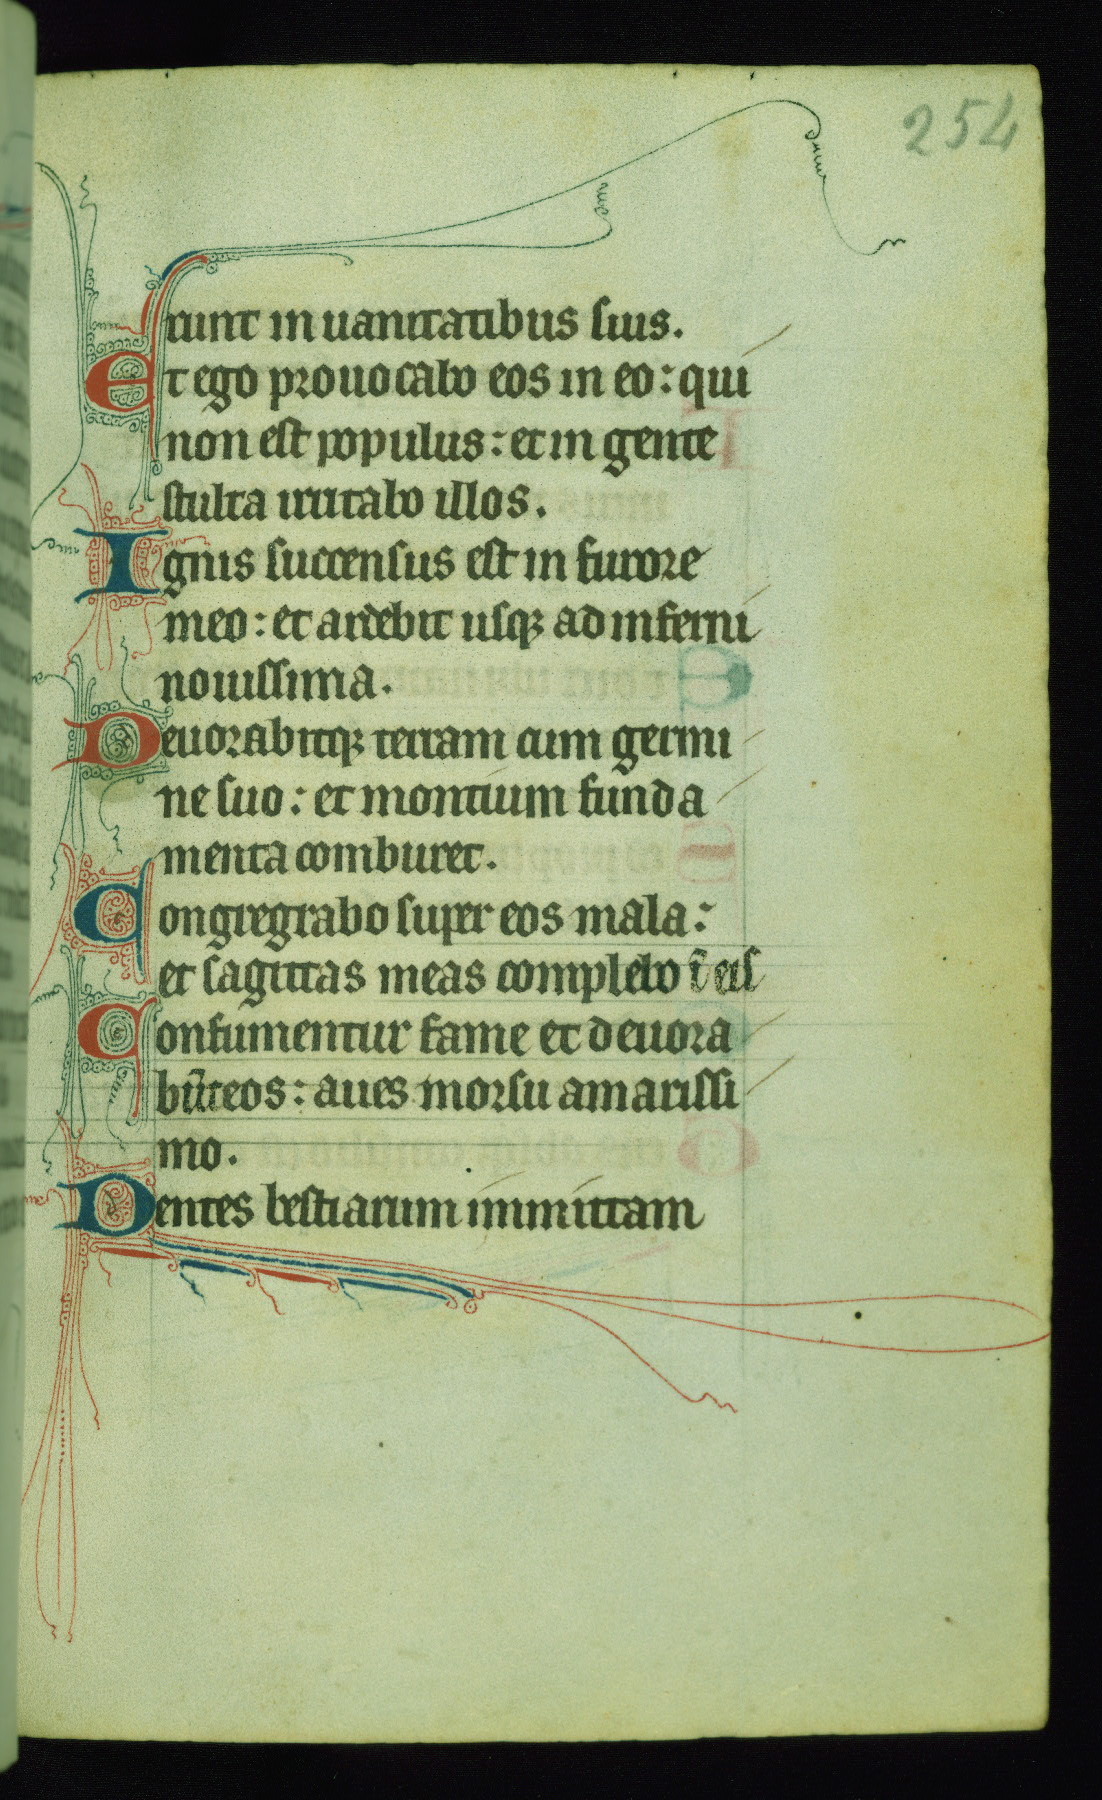 254
runt in uanitatibus suis.
Et ego prouocabo eos in eo: qui
non est populus: et in gente
stulta irritabo illos.
Ignis succensus est in furore
meo: et ardebit usqꝫ ad inferni
nouissima.
Deuorabitqꝫ terram cum germi
ne suo: et montium funda
menta comburet.
Congregabo super eos mala:
et sagittas meas complebo ĩ eis
Consumentur fame et deuora
bũt eos: aues morsu amarissi
mo.
Dentes bestiarum immittam